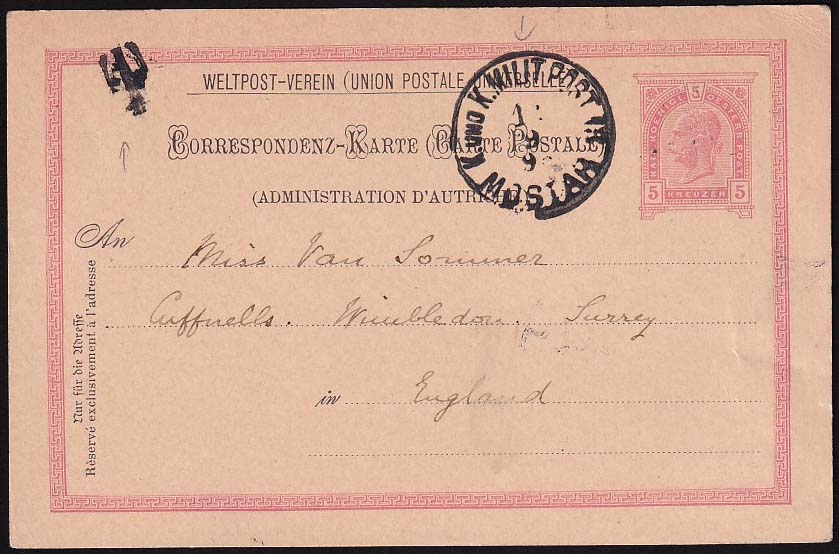 WELTPOST-VEREIN (UNION POSTALE UNIVERSELLE)
CORRESPONDENZ-KARTE (CARTE POSTALE)
(ADMINISTRATION D'AUTRICHE)
K. UND K. MILIT. POST
MOSTAR
5
KAIS. KOENIGL. OESTERR. POST.
5 KREUZER 5
An Miss Van Sommer
Cuffnells. Wimbledon. Surrey
in England
Nur für die Adresse
Réservé exclusivement à l'adresse